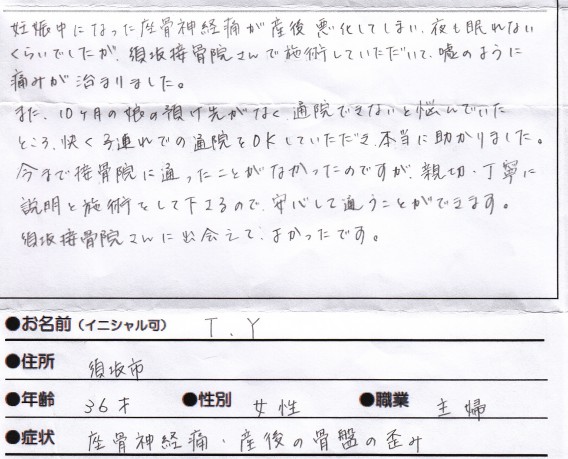 妊娠中になった座骨神経痛が産後悪化してしまい、夜も眠れない
くらいでしたが、須坂接骨院さんで施術していただいて、嘘のように
痛みが治まりました。
また、10ヶ月の娘の預け先がなく、通院できないと悩んでいた
ところ、快く子連れでの通院をOKしていただき、本当に助かりました。
今まで接骨院に通ったことがなかったのですが、親切・丁寧に
説明と施術をして下さるので、安心して通うことができます。
須坂接骨院さんに出会えて、よかったです。
●お名前（イニシャル可） T.Y
●住所 須坂市
●年齢 36才 ●性別 女性 ●職業 主婦
●症状 座骨神経痛・産後の骨盤の歪み